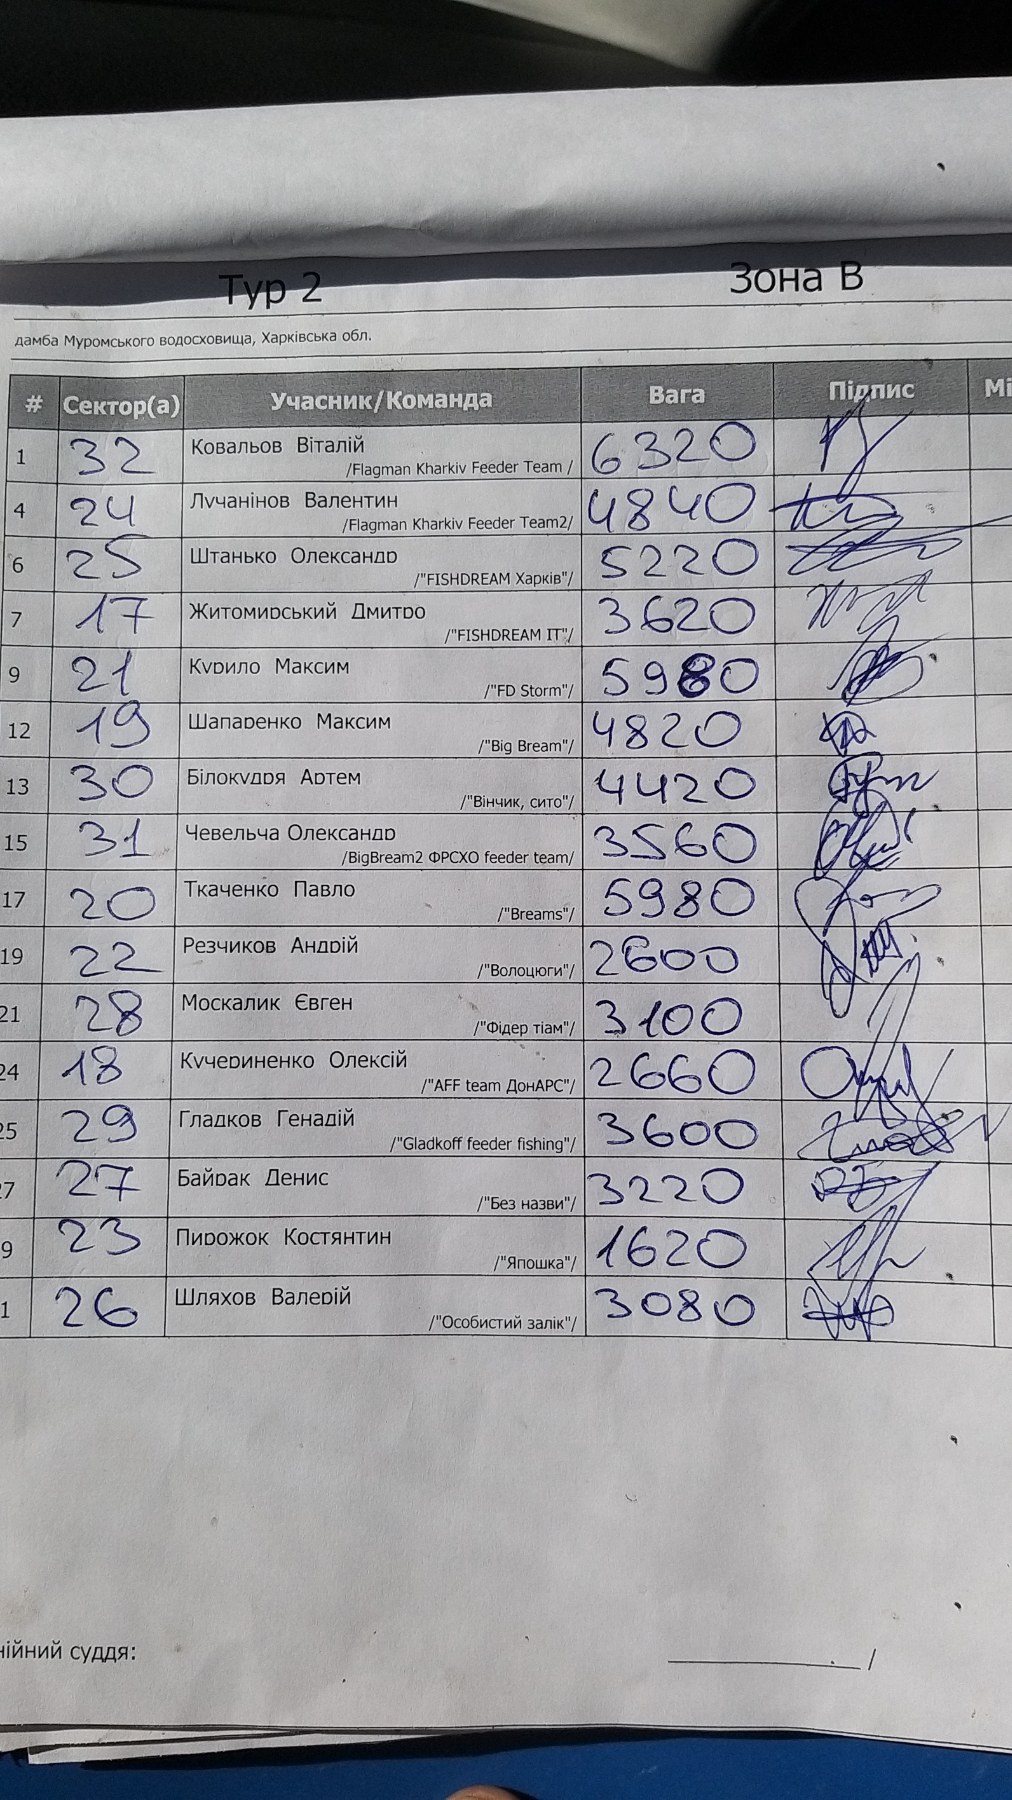 Тур 2 Зона В
дамба Муромського водосховища, Харківська обл.
# Сектор(а) Учасник/Команда Вага Підпис Мі
1 32 Ковальов Віталій 6320
/Flagman Kharkiv Feeder Team /
4 24 Лучанінов Валентин 4840
/Flagman Kharkiv Feeder Team2/
6 25 Штанько Олександр 5220
/"FISHDREAM Харків"/
7 17 Житомирський Дмитро 3620
/"FISHDREAM IT"/
9 21 Курило Максим 5980
/"FD Storm"/
12 19 Шапаренко Максим 4820
/"Big Bream"/
13 30 Білокудря Артем 4420
/"Вінчик, сито"/
15 31 Чевельча Олександр 3560
/BigBream2 ФРСХО feeder team/
17 20 Ткаченко Павло 5980
/"Breams"/
19 22 Резчиков Андрій 2600
/"Волоцюги"/
21 28 Москалик Євген 3100
/"Фідер тіам"/
24 18 Кучериненко Олексій 2660
/"AFF team ДонАРС"/
25 29 Гладков Генадій 3600
/"Gladkoff feeder fishing"/
7 27 Байрак Денис 3220
/"Без назви"/
9 23 Пирожок Костянтин 1620
/"Япошка"/
1 26 Шляхов Валерій 3080
/"Особистий залік"/
нійний суддя: /